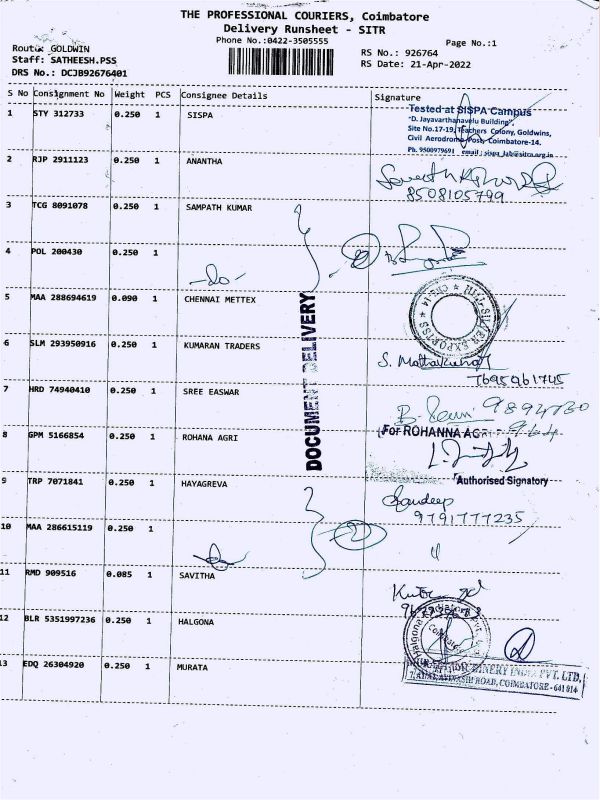 THE PROFESSIONAL COURIERS, Coimbatore
Delivery Runsheet - SITR
Phone No.:0422-3505555
Page No.:1
Route: GOLDWIN
Staff: SATHEESH.PSS
DRS No.: DCJB92676401
RS No.: 926764
RS Date: 21-Apr-2022
S No Consignment No Weight PCS Consignee Details Signature
1 STY 312733 0.250 1 SISPA
Tested at SISPA Campus
"D. Jayavarthanavelu Building",
Site No.17-19, Teachers Colony, Goldwins,
Civil Aerodrome Post, Coimbatore-14.
Ph. 9500979691 email : sispa_lab@sitra.org.in
2 RJP 2911123 0.250 1 ANANTHA
8508105799
3 TCG 8091078 0.250 1 SAMPATH KUMAR
4 POL 200430 0.250 1
-do-
5 MAA 288694619 0.090 1 CHENNAI METTEX
6 SLM 293950916 0.250 1 KUMARAN TRADERS
7695961745
DOCUMENT DELIVERY
7 HRD 74940410 0.250 1 SREE EASWAR
8 GPM 5166854 0.250 1 ROHANA AGRI
For ROHANNA AGRI
Authorised Signatory
9 TRP 7071841 0.250 1 HAYAGREVA
Sandeep
9791777235
10 MAA 286615119 0.250 1
11 RMD 909516 0.085 1 SAVITHA
12 BLR 5351997236 0.250 1 HALGONA
13 EDQ 26304920 0.250 1 MURATA
MACHINERY INDIA PVT. LTD.
ROAD, COIMBATORE - 641 014